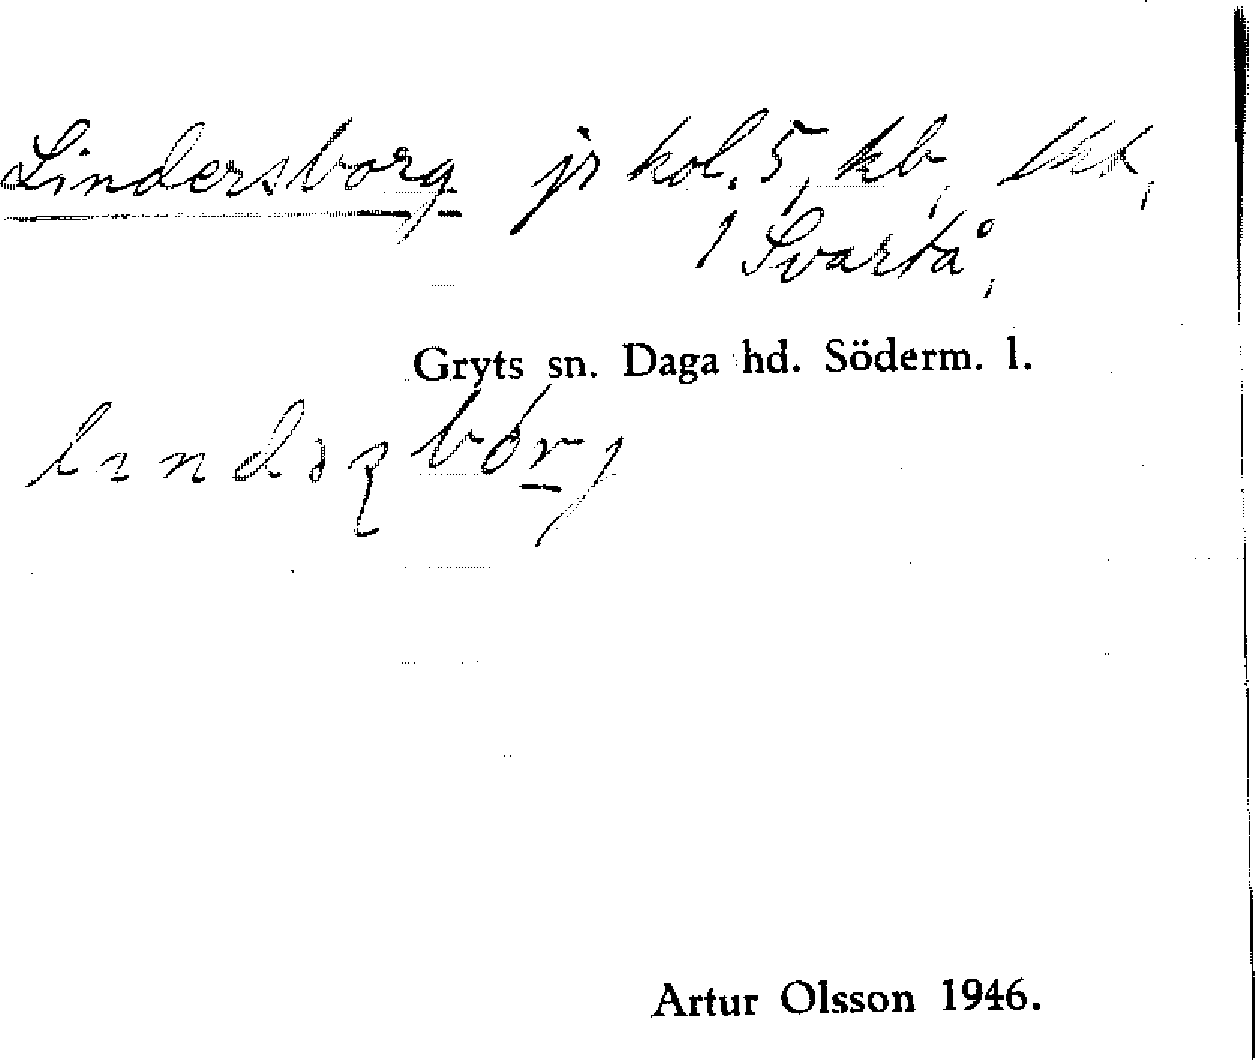 Lindersborg jr kol. 5, kb,
1 Svartå,
Gryts sn. Daga hd. Söderm. l.
Artur Olsson 1946.